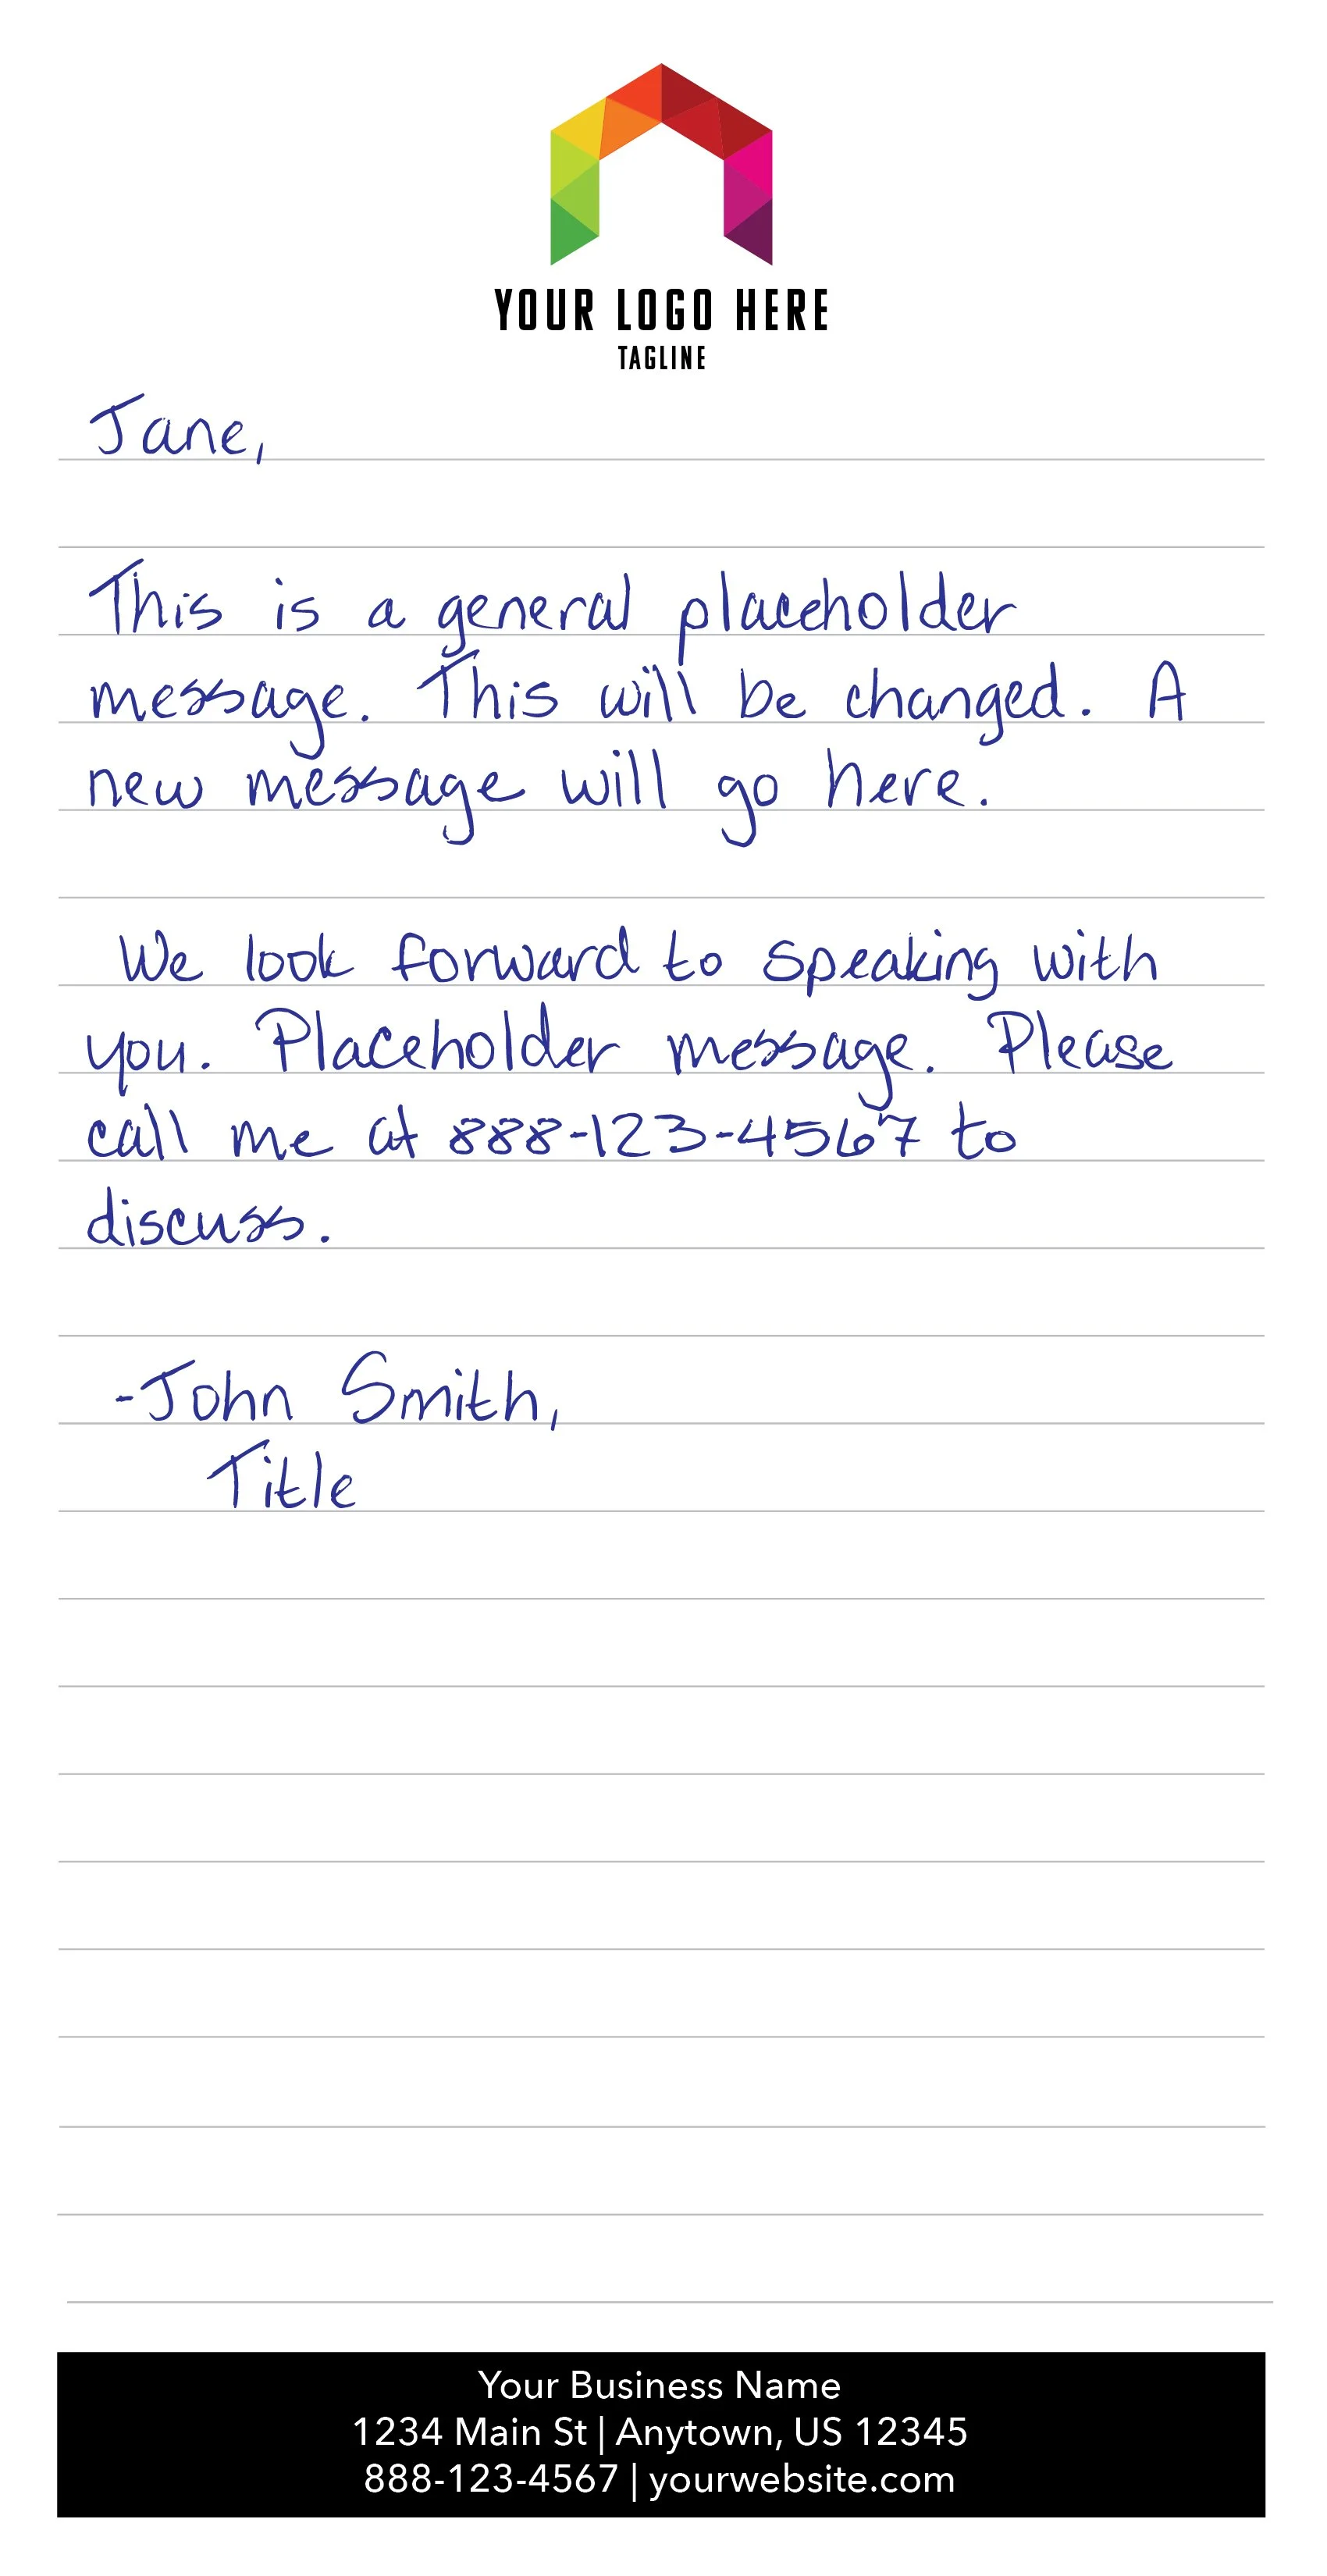 YOUR LOGO HERE
TAGLINE
Jane,
This is a general placeholder
message. This will be changed. A
new message will go here.
We look forward to speaking with
you. Placeholder message. Please
call me at 888-123-4567 to
discuss.
-John Smith,
Title
Your Business Name
1234 Main St | Anytown, US 12345
888-123-4567 | yourwebsite.com